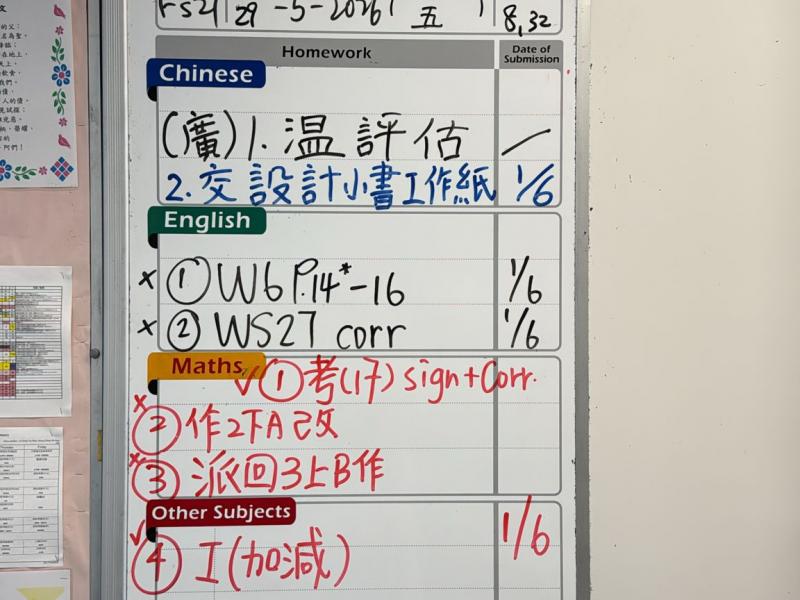 29-5-2026 ( 五 ) 8,32
Homework Date of Submission
Chinese
(廣) 1. 温評估 —
2. 交設計小書工作紙 1/6
English
x ① W6 P.14*-16 1/6
x ② WS27 corr 1/6
Maths
✓ ① 考(17) sign+Corr.
x ② 作2下A改
x ③ 派回3上B作
Other Subjects
✓ ④ I(加減) 1/6